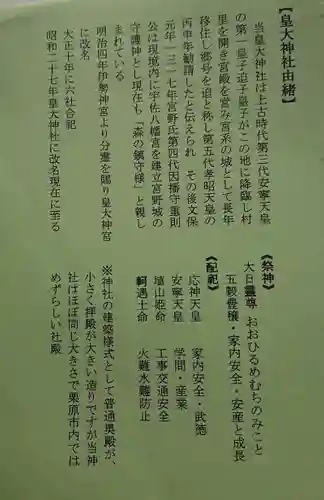 【皇大神社由緒】
当皇大神社は上古時代第三代安寧天皇
の第一皇子迫子皇子がこの地に降臨し村
里を開き宮殿を営み宮系の城として長年
移住し郷号を迫と称し第五代孝昭天皇の
丙申年勧請したと伝えられ その後文保
元年一三一七年宮野氏第四代因播守重則
公は現境内に宇佐八幡宮を建立宮野城の
守護神とし現在も「森の鎮守様」と親し
まれている
明治四年伊勢神宮より分霊を賜り皇大神宮
に改名
大正十年に六社合祀
昭和二十七年皇大神社に改名現在に至る
《祭神》
大日孁尊 おおひるめむちのみこと
五穀豊穣・家内安全・安産と成長
《配祀》
応神天皇 家内安全・武徳
安寧天皇 学問・産業
埴山姫命 工事交通安全
軻遇土命 火難水難防止
※神社の建築様式として普通奥殿が、
小さく拝殿が大きい造りですが当神
社はほぼ同じ大きさで栗原市内では
めずらしい社殿